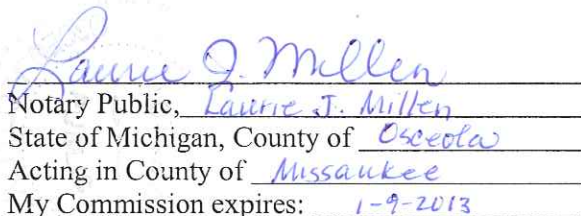 Laurie J. Millen
Notary Public, Laurie J. Millen
State of Michigan, County of Osceola
Acting in County of Missaukee
My Commission expires: 1-9-2013